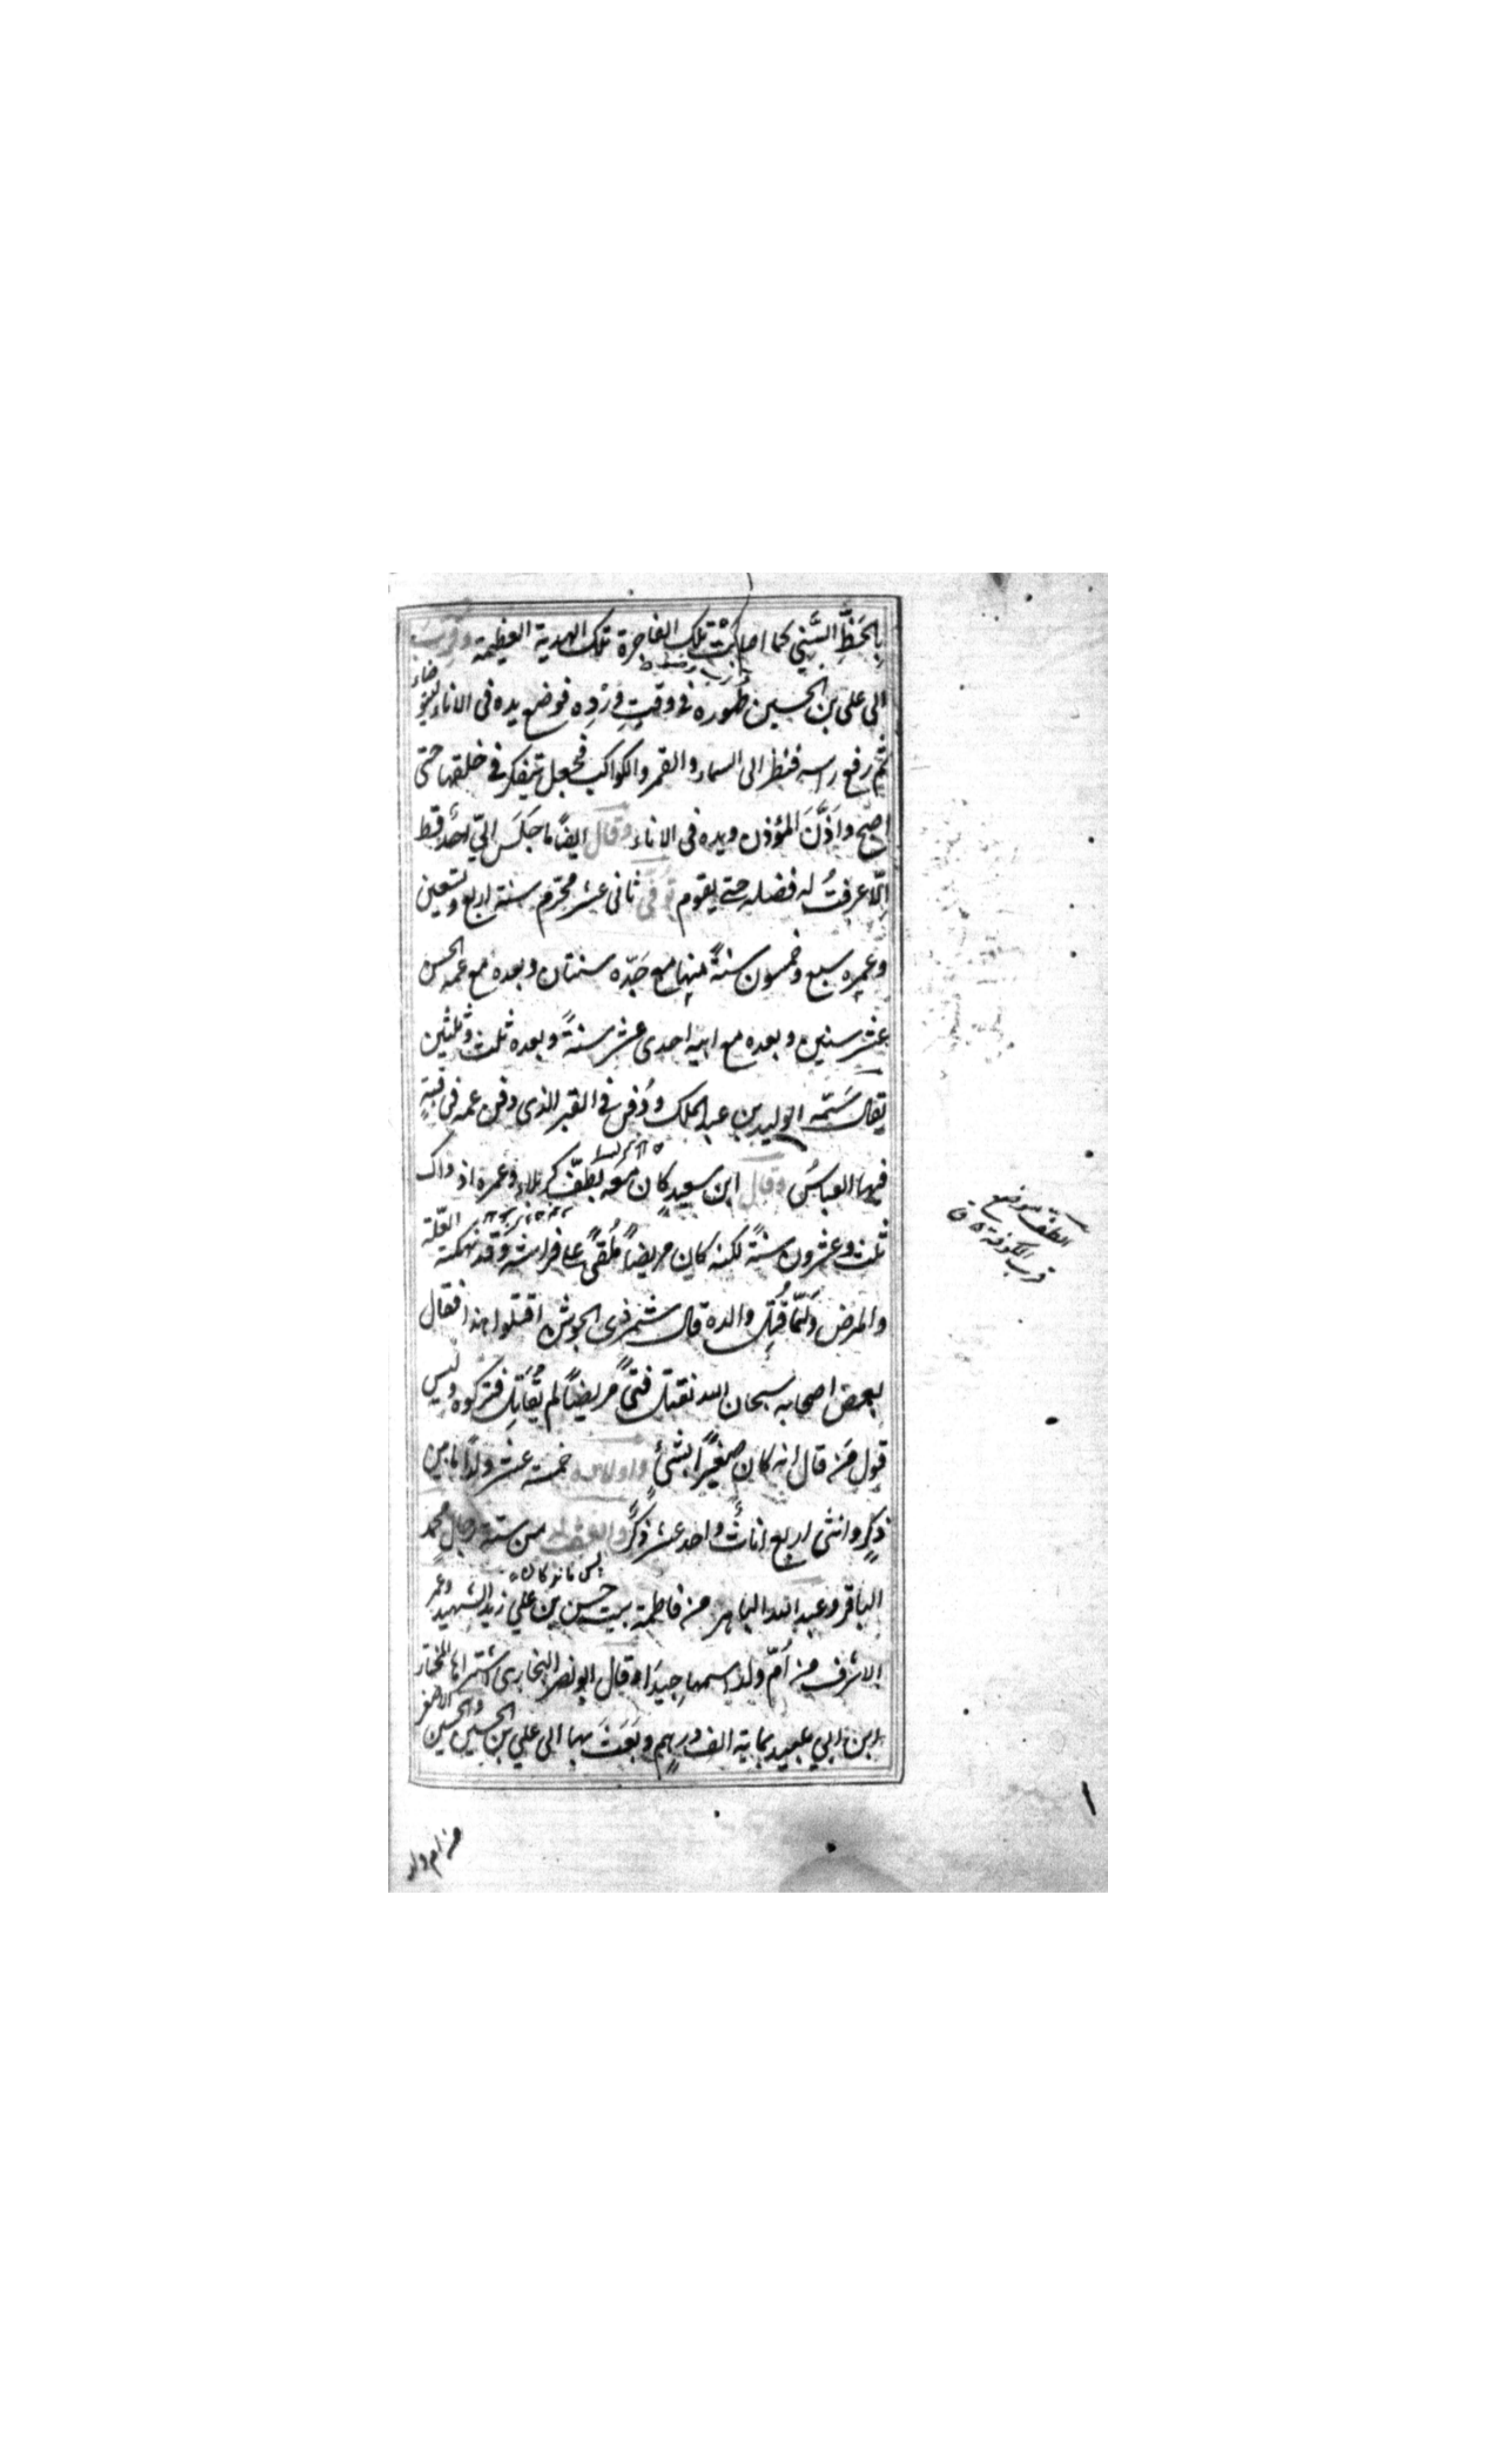 بِالحَظِّ السَّنِي كما اصابَتْ تلك الفاجرة تلك الهدية العظيمة وقرّبت
الى على بن الحسين طهوره فى وقتِ وِرْدِه فوضع يده فى الاناء ليتوضاء
ثم رفع راسه فنظر الى السماء والقمر والكواكب فجعل يتفكر فى خلقها حتى
اصبح واَذَّنَ المؤذن ويده فى الاناء وقال ايضًا ما جَلَسَ اليّ احدٌ قط
اِلّا عرفتُ له فضله حتى يقوم تُوُفّى ثانى عشر محرّم سنة اربع وتسعين
وعمره سبع وخمسون سنةً منها مع جَدّه سنتان وبعده مع عمه الحسن
عشر سنين وبعده مع ابيه احدى عشر سنةً وبعده ثلث وثلثين
يقال سَمَّه الوليد بن عبد الملك ودُفِن فى القبر الذى دفن عمه فى قبةٍ
فيها العباسُ وقال ابن سعيد كان معه بطفّ كربلاء وعمره اذ ذاك
ثلث وعشرون سنةً لكنه كان مريضاً مُلقىً على فراشه وقد نهكته العلّة
والمرض ولمّا قُتِل والده قال شمر ذى الجوشن اقتلوا هذا فقال
بعض اصحابه سبحان الله نقتل فتىً مريضاً لم يُقاتِل فتركوه وليس
قول من قال انه كان صغيرًا بشئٍ واولاده خمسة عشر ولدًا ما بين
ذكرٍ وانثى اربع اناثٌ واحد عشر ذكرًا والعقب من ستة رجال محمد
الباقر وعبد الله الباهر من فاطمة بنت حسن بن علي زيد الشهيد وعمر
الاشرف من اُمّ ولد اسمها جيدَاء قال ابو نصر البخارى اشتراها المختار
ابن ابي عبيد بماية الف درهم وبَعَثَ بها الى علي بن الحسين والحسين الاصغر
من ام ولد
الطف موضع
قرب الكوفة ق